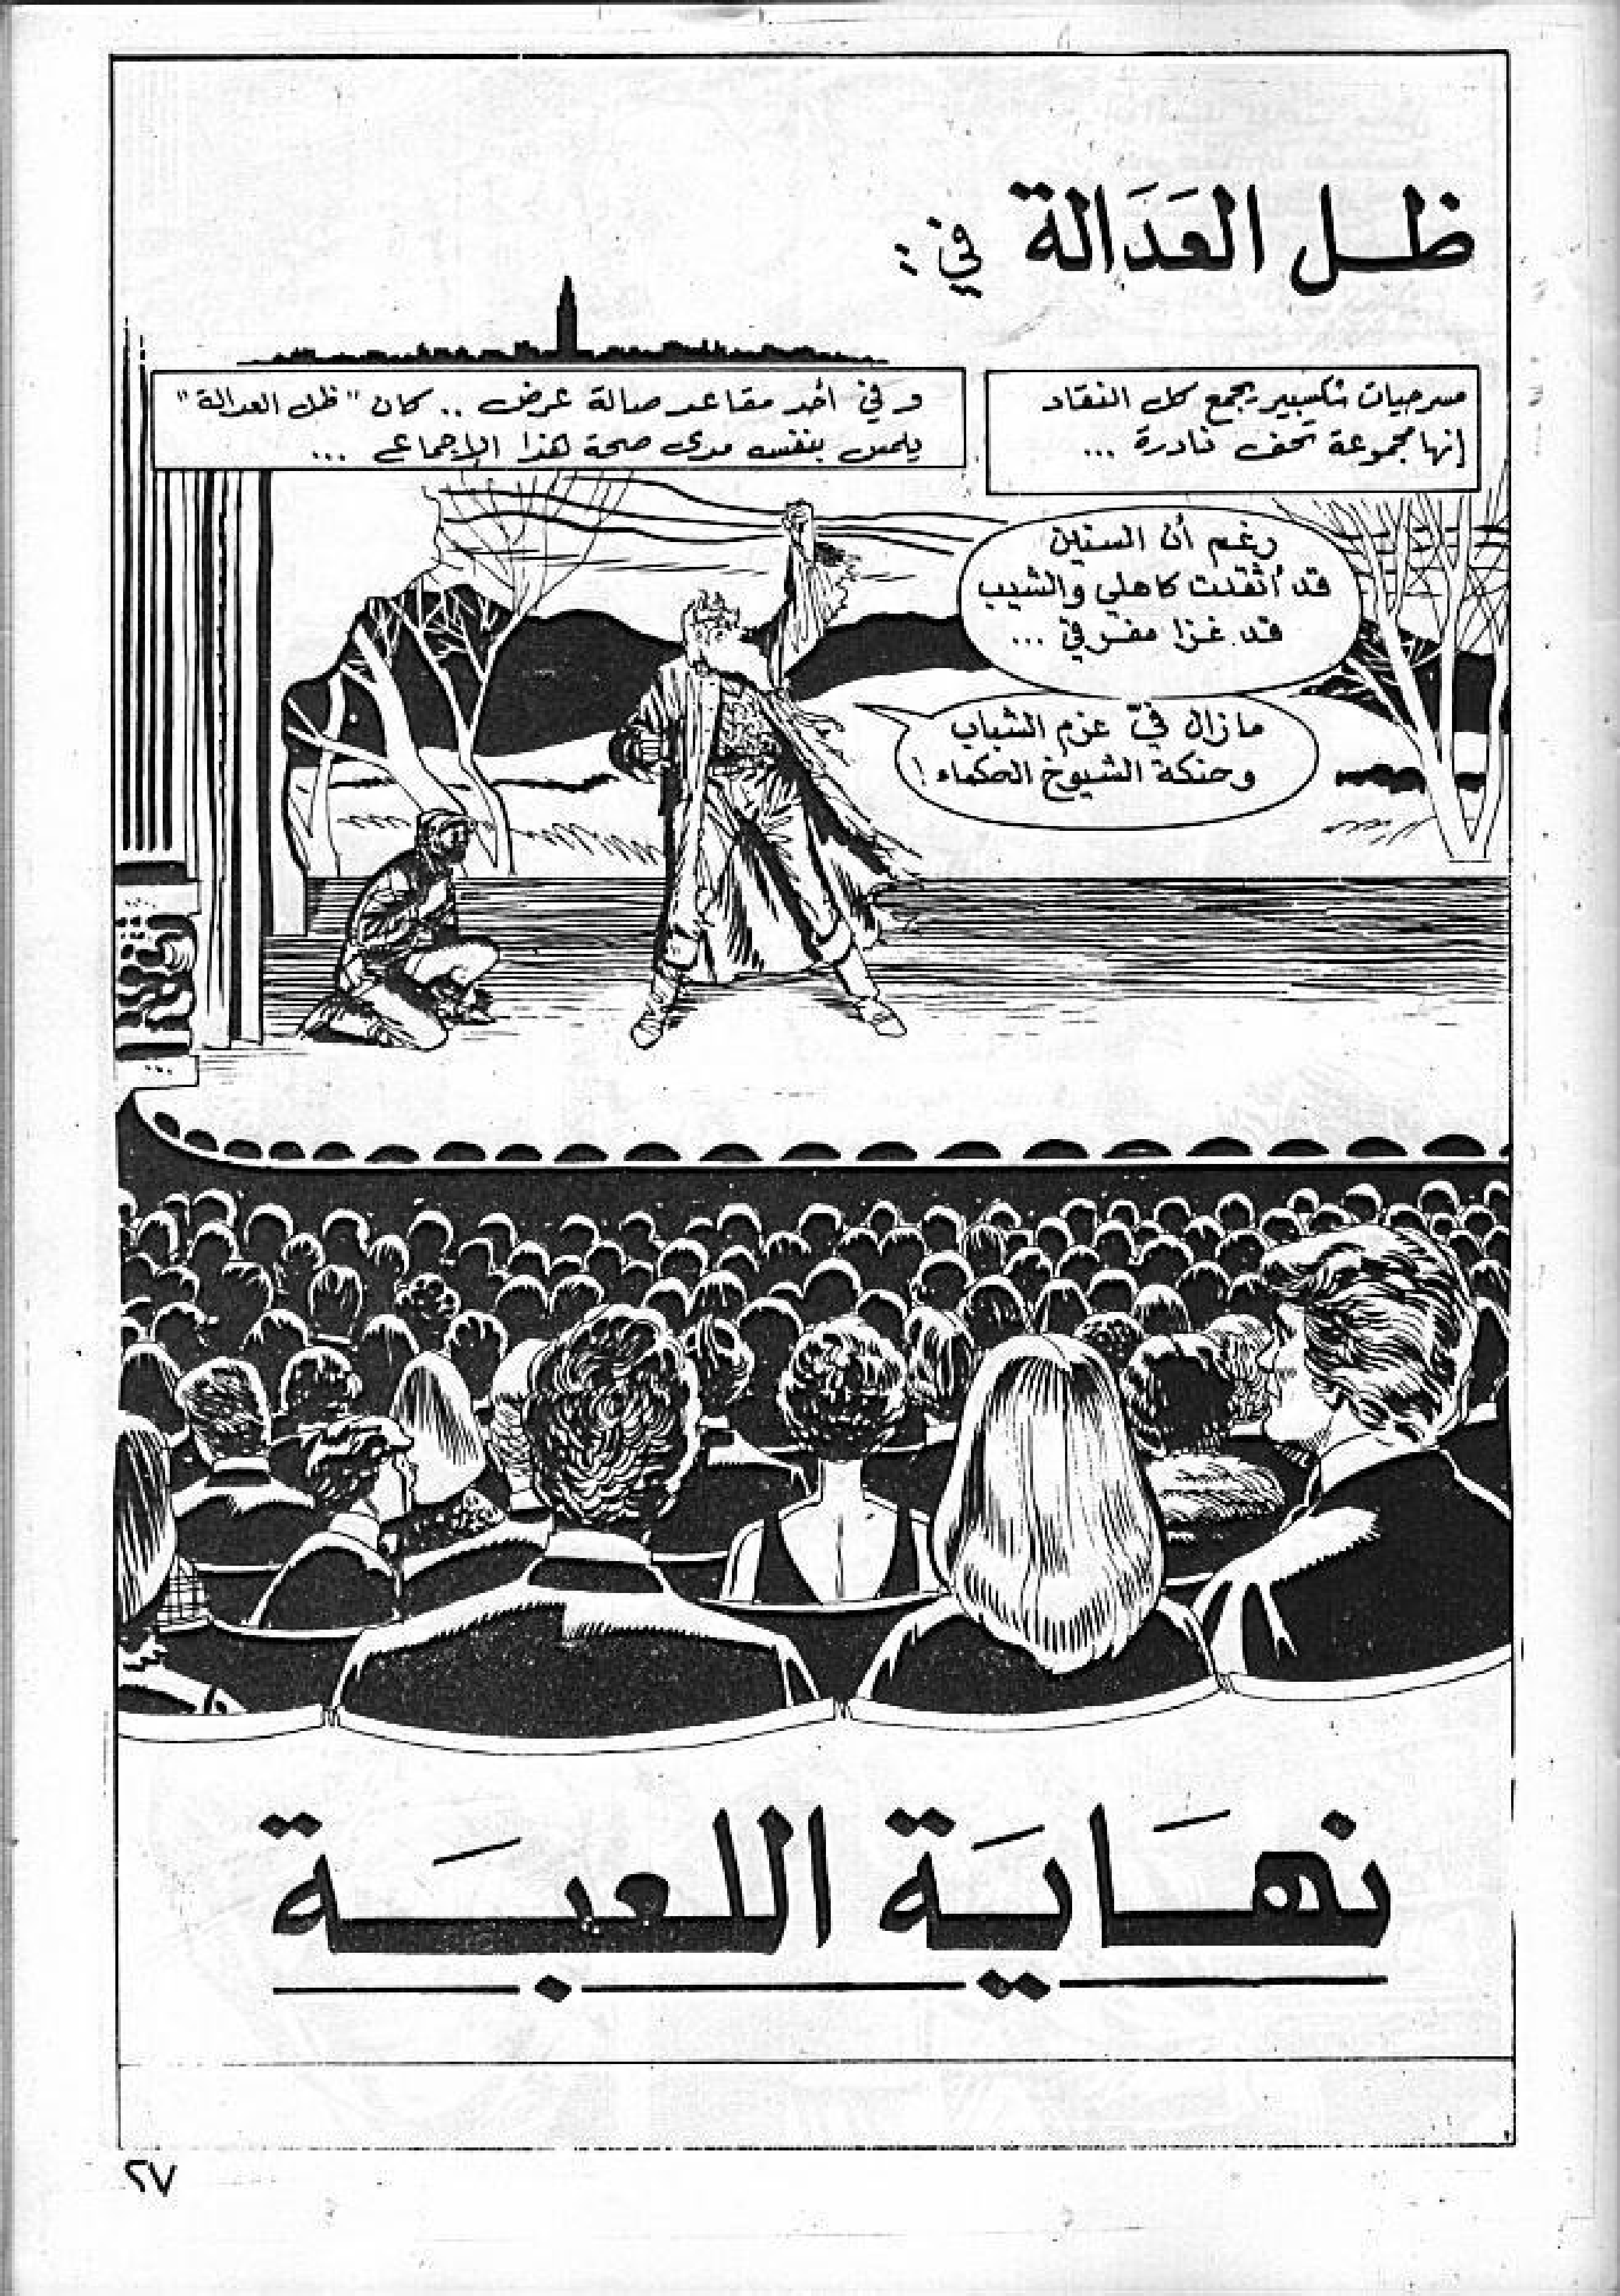 ظل العَدَالة في:
مسرحيات شكسبير يجمع كل النقاد
إنها مجموعة تحف نادرة ...
و في أحد مقاعد صالة عرض .. كان "ظل العدالة"
يلمس بنفسه مدى صحة هذا الإجماع ...
رغم أن السنين
قد أثقلت كاهلي والشيب
قد غزا مفرقي ...
مازال فيّ عزم الشباب
وحنكة الشيوخ الحكماء !
نهَايَة اللعبَة
٢٧